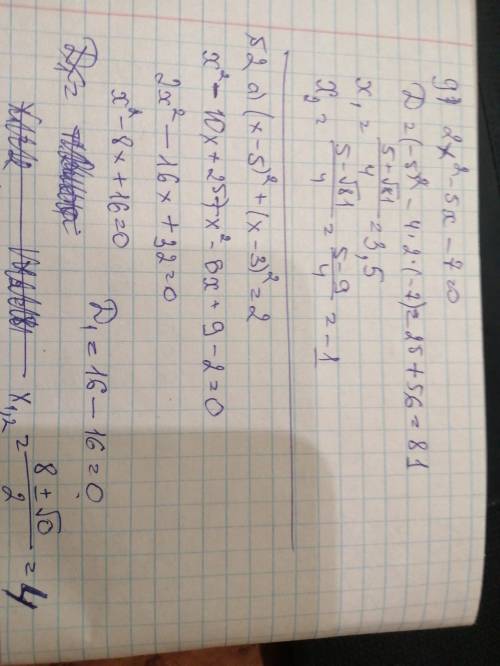 г) 2x² - 5x - 7 = 0
D = (-5)² - 4·2·(-7) = 25 + 56 = 81
x₁ = (5+√81)/4 = 3,5
x₂ = (5-√81)/4 = (5-9)/4 = -1
52 а) (x-5)² + (x-3)² = 2
x² - 10x + 25 + x² - 6x + 9 - 2 = 0
2x² - 16x + 32 = 0
x² - 8x + 16 = 0 D₁ = 16 - 16 = 0
x₁,₂ = (8±√0)/2 = 4